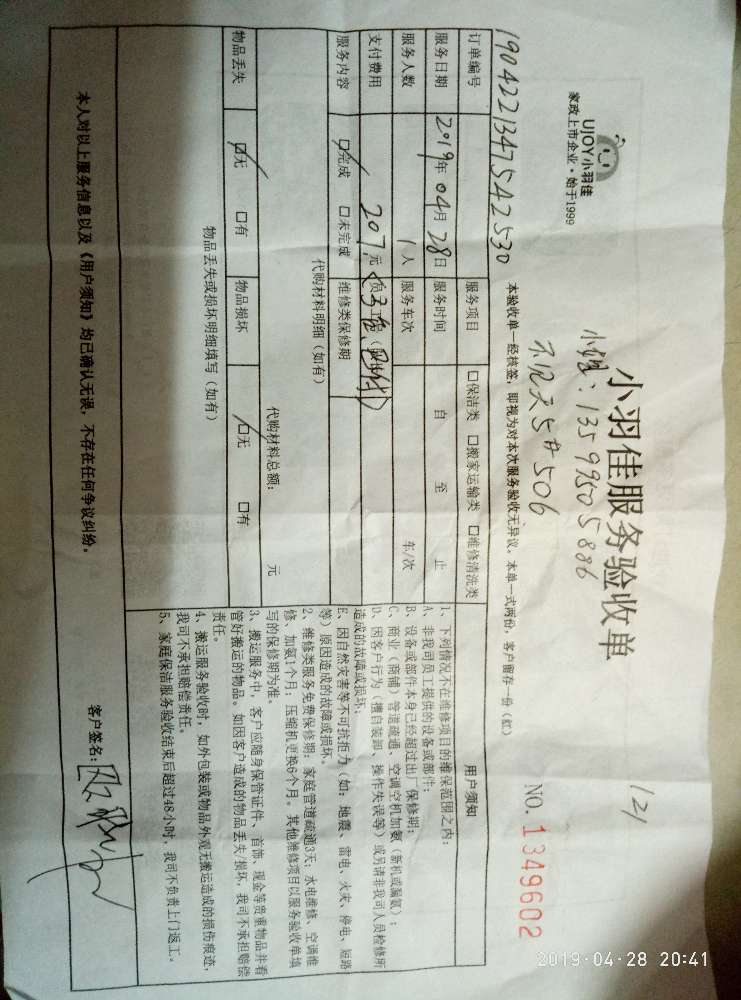 UJOY小羽佳
家政上市企业·始于1999
小羽佳服务验收单
121
NO. 1349602
13599505886
5#506
本验收单一经核签，即视为对本次服务验收无异议。本单一式两份，客户留存一份（红）
订单编号 1904221347542530
服务项目 口保洁类 口搬家运输类 口维修清洗类
服务日期 2019年 04月 28日
服务时间 自 至 止
服务人数 1人
服务车次 车/次
支付费用 207元
服务内容 口完成 口未完成
维修类保修期
代购材料明细（如有）
代购材料总额： 元
物品丢失 口无 口有
物品损坏 口无 口有
物品丢失或损坏明细填写（如有）
用户须知
1、下列情况不在维修项目的维保范围之内：
A、非我司员工提供的设备或部件；
B、设备或部件本身已经超过出厂保修期；
C、商业（商铺）管道疏通、空调空机加氨（新机或漏氨）；
D、因客户行为（擅自装卸、操作失误等）或另请非我司人员检修所
造成的故障或损坏；
E、因自然灾害等不可抗拒力（如：地震、雷电、火灾、停电、短路
等）原因造成的故障或损坏。
2、维修类服务免费保修期：家庭管道疏通3天，水电维修、空调维
修、加氨1个月；压缩机更换6个月。其他维修项目以服务验收单填
写的保修期为准。
3、搬运服务中，客户应随身保管证件、首饰、现金等贵重物品并看
管好搬运的物品。如因客户造成的物品丢失/损坏，我司不承担赔偿
责任。
4、搬运服务验收时，如外包装或物品外观无搬运造成的损伤痕迹，
我司不承担赔偿责任。
5、家庭保洁服务验收结束后超过48小时，我司不负责上门返工。
本人对以上服务信息以及《用户须知》均已确认无误，不存在任何争议纠纷。
客户签名：
2019-04-28 20:41